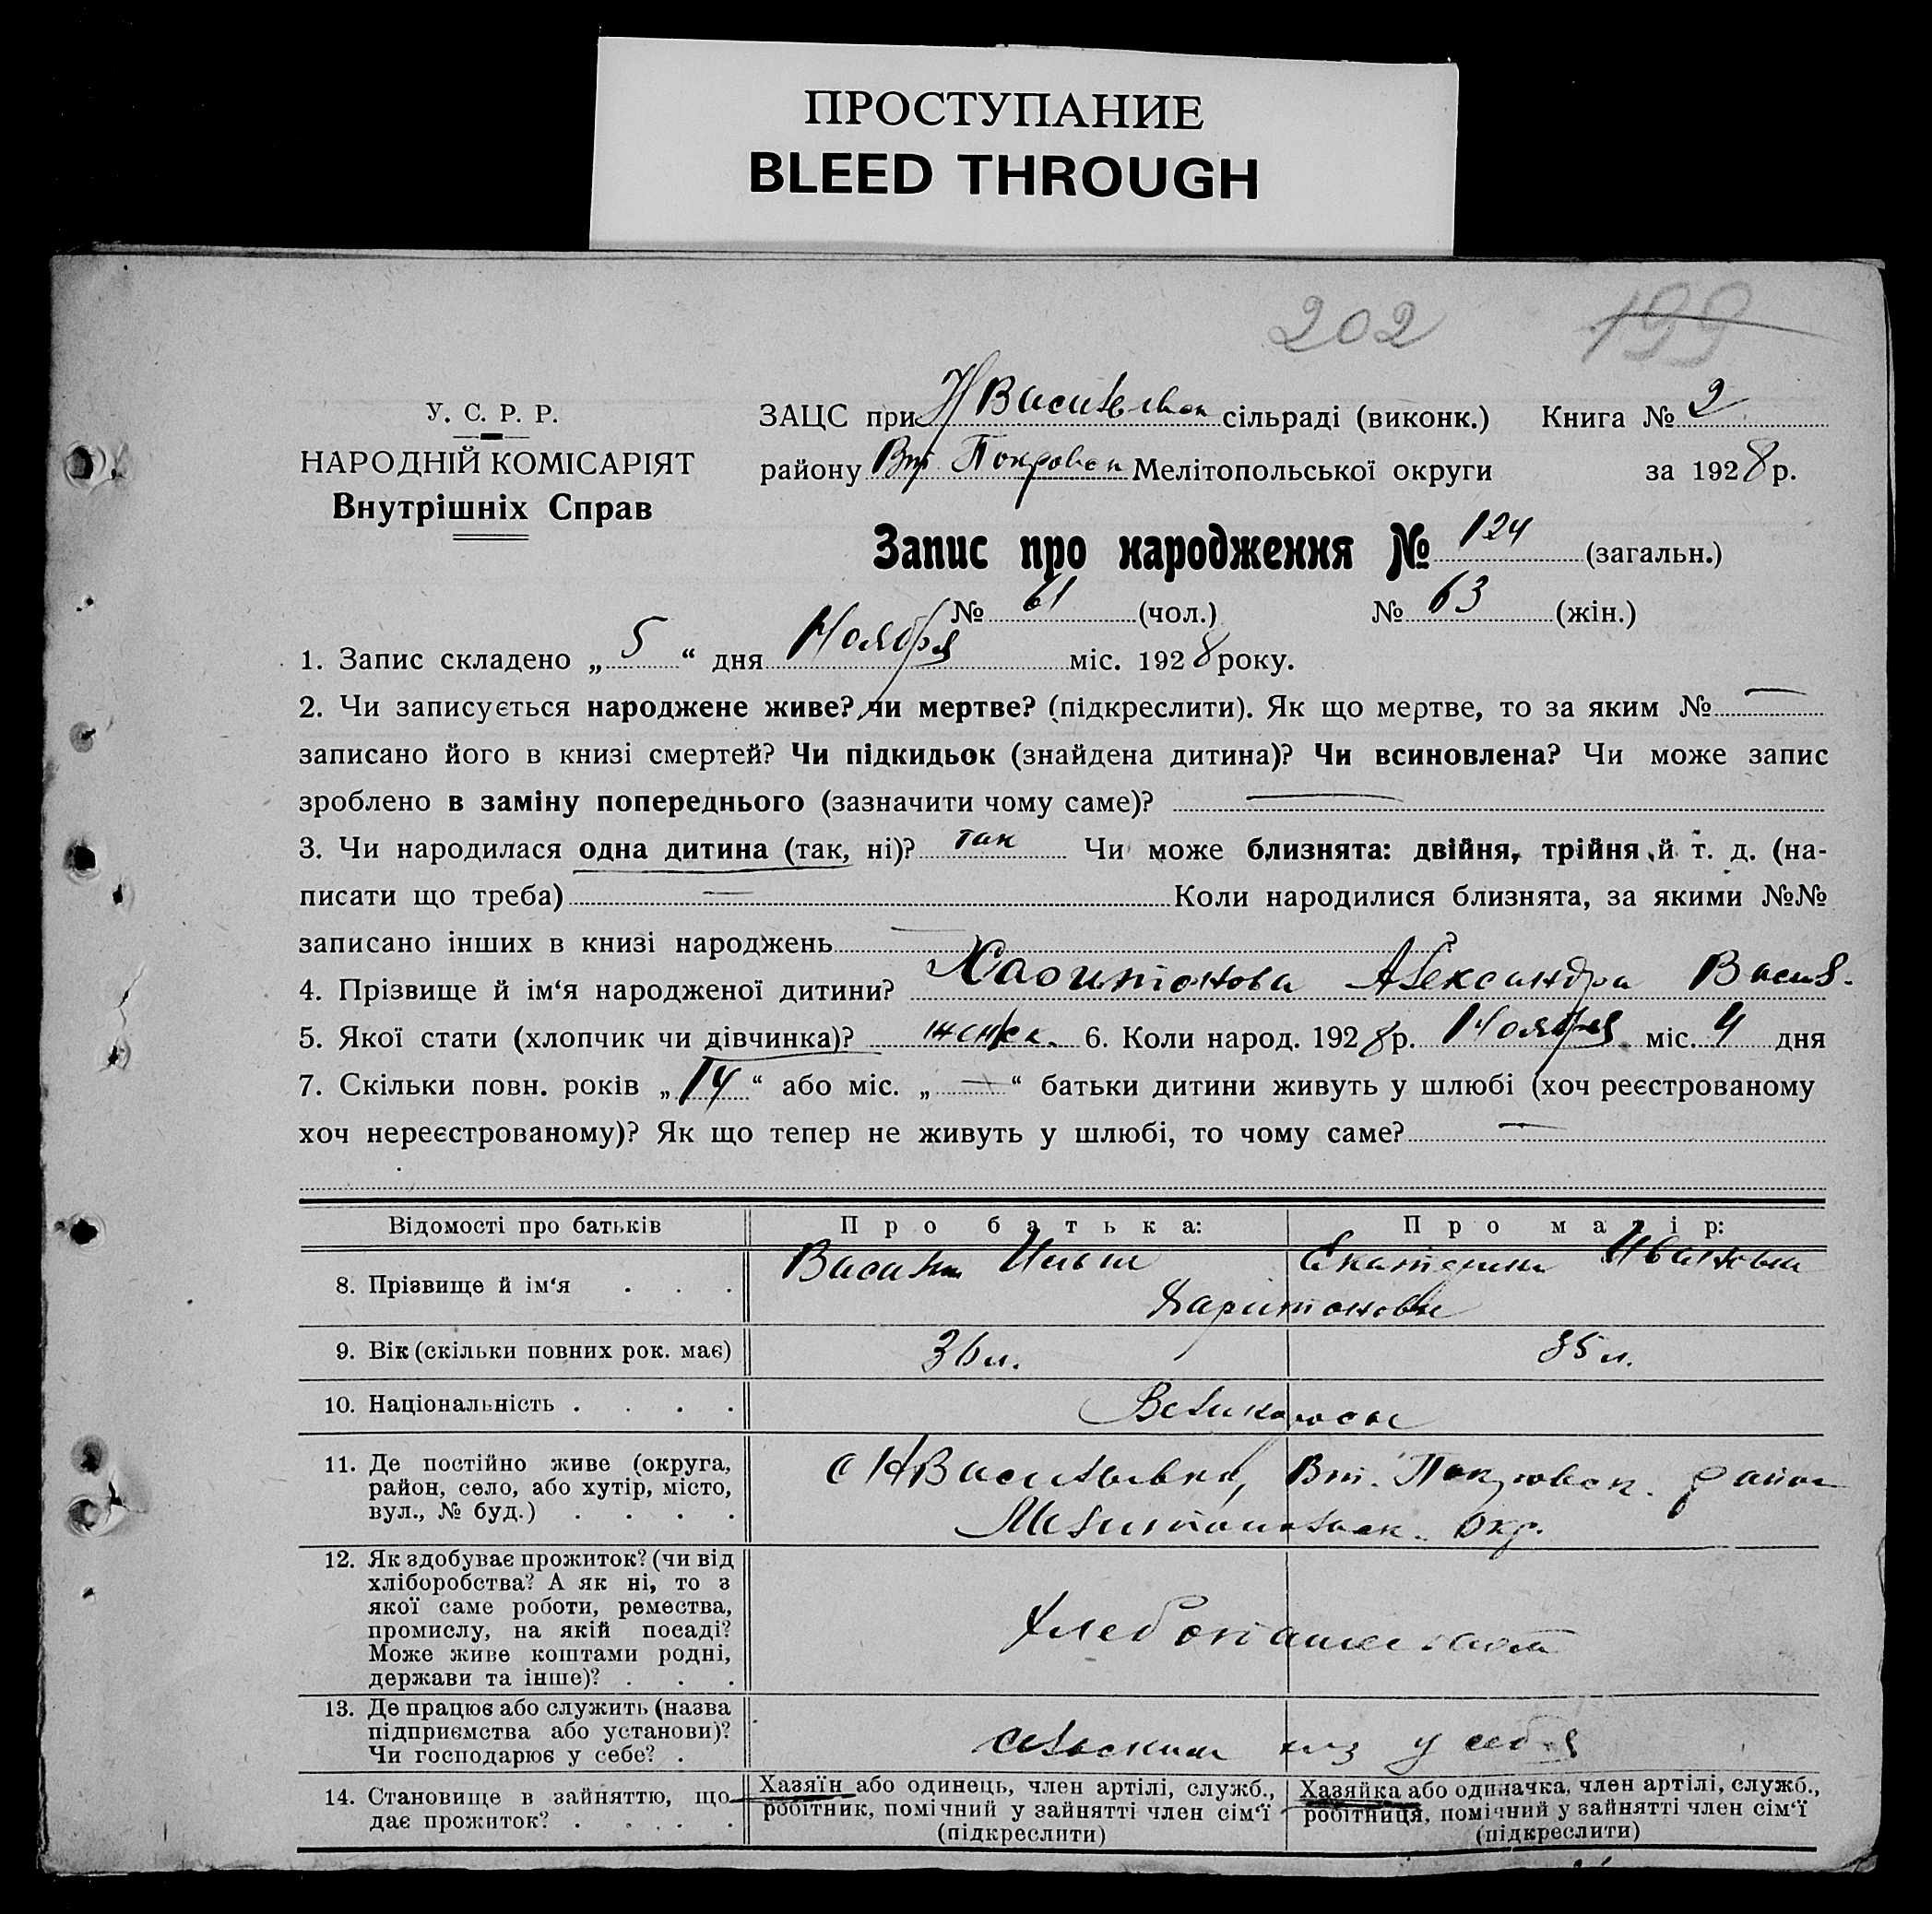 ПРОСТУПАНИЕ
BLEED THROUGH
202 199
У. С. Р. Р.
НАРОДНІЙ КОМІСАРІЯТ
Внутрішніх Справ
ЗАЦС при Н Васильевск сільраді (виконк.) Книга № 2
району Вт. Покровск Мелітопольської округи за 1928 р.
Запис про народження № 124 (загальн.)
№ 61 (чол.) № 63 (жін.)
1. Запис складено „ 5 “ дня Ноября міс. 1928 року.
2. Чи записується народжене живе? чи мертве? (підкреслити). Як що мертве, то за яким № —
записано його в книзі смертей? Чи підкидьок (знайдена дитина)? Чи всиновлена? Чи може запис
зроблено в заміну попереднього (зазначити чому саме)? —
3. Чи народилася одна дитина (так, ні)? так Чи може близнята: двійня, трійня й т. д. (на-
писати що треба) — Коли народилися близнята, за якими №№
записано інших в книзі народжень — ?
4. Прізвище й ім‘я народженої дитини? Харитонова Александра Васил.
5. Якої стати (хлопчик чи дівчинка)? женск. 6. Коли народ. 1928 р. Ноября міс. 4 дня
7. Скільки повн. років „ 14 “ або міс. „ — “ батьки дитини живуть у шлюбі (хоч реєстрованому
хоч нереєстрованому)? Як що тепер не живуть у шлюбі, то чому саме? —
Відомості про батьків Про батька: Про матір:
8. Прізвище й ім‘я . . . Екатерина Ивановна
Харитоновы
9. Вік (скільки повних рок. має) 36 л. 35 л.
10. Національність . . . . Великороссы
11. Де постійно живе (округа,
район, село, або хутір, місто,
вул., № буд.) . . . .
с Н Васильевка, Вт. Покровск. район
Мелитопольск. окр.
12. Як здобуває прожиток? (чи від
хліборобства? А як ні, то з
якої саме роботи, ремества,
промислу, на якій посаді?
Може живе коштами родні,
держави та інше)? . . .
13. Де працює або служить (назва
підприємства або установи)?
Чи господарює у себе? .
у себя
14. Становище в зайняттю, що
дає прожиток? . . . . .
Хазяїн або одинець, член артілі, служб.,
робітник, помічний у зайнятті член сім‘ї
(підкреслити)
Хазяйка або одиначка, член артілі, служб.,
робітниця, помічний у зайнятті член сім‘ї
(підкреслити)